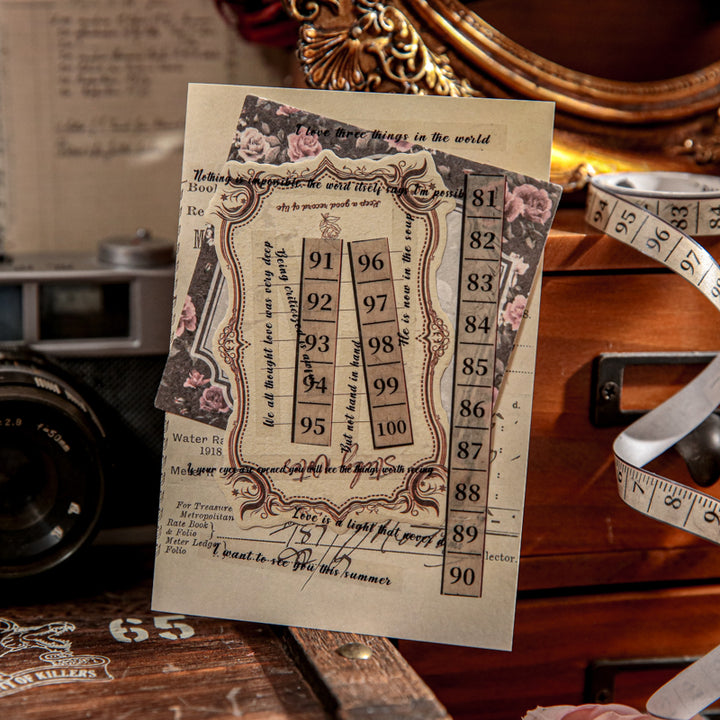 I love three things in the world
Nothing is impossible, the word itself says I'm possib
Book
Keep a good record of life
We all thought love was very deep
Being criticized is
91
92
93
94
95
But not hand in hand
96
97
98
99
100
He is now in the soup
81
82
83
84
85
86
87
88
89
90
Water Ra
1918
Meter
If your eyes are opened, you will see the things worth seeing
Love is a light that never
For Treasure
Metropolitan
Rate Book
& Folio
Meter Ledge
Folio
lector.
I want to see you this summer
94 95 96 97
83
7 8 9
f=50mm
2.8
65
TY OF KILLERS